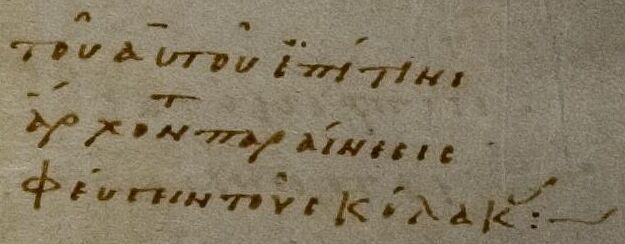 τοῦ ἀυτοῦ ἐπί τινι
ἄρχοντ παραίνεσις
φέυγειν τοὺς κόλακ :